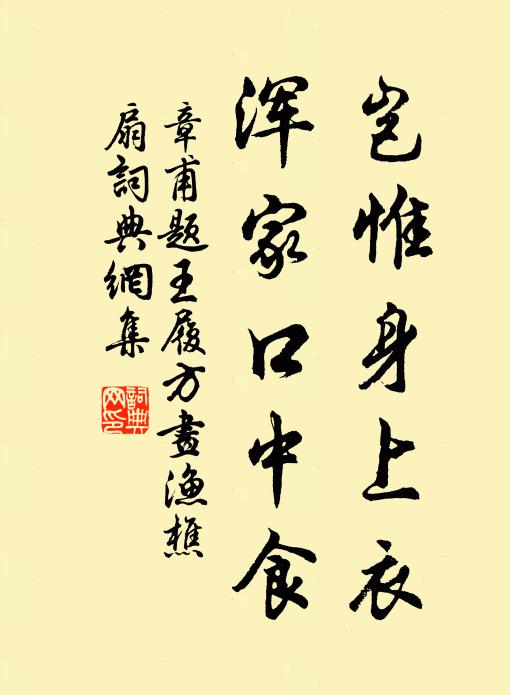 岂惟身上衣
浑家口中食
章甫题王履方畫漁樵
扇詞典網集
詞典
网印